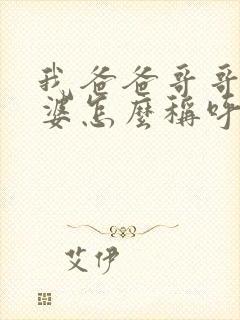 我爸爸哥哥
婆怎麼稱呼
艾伊